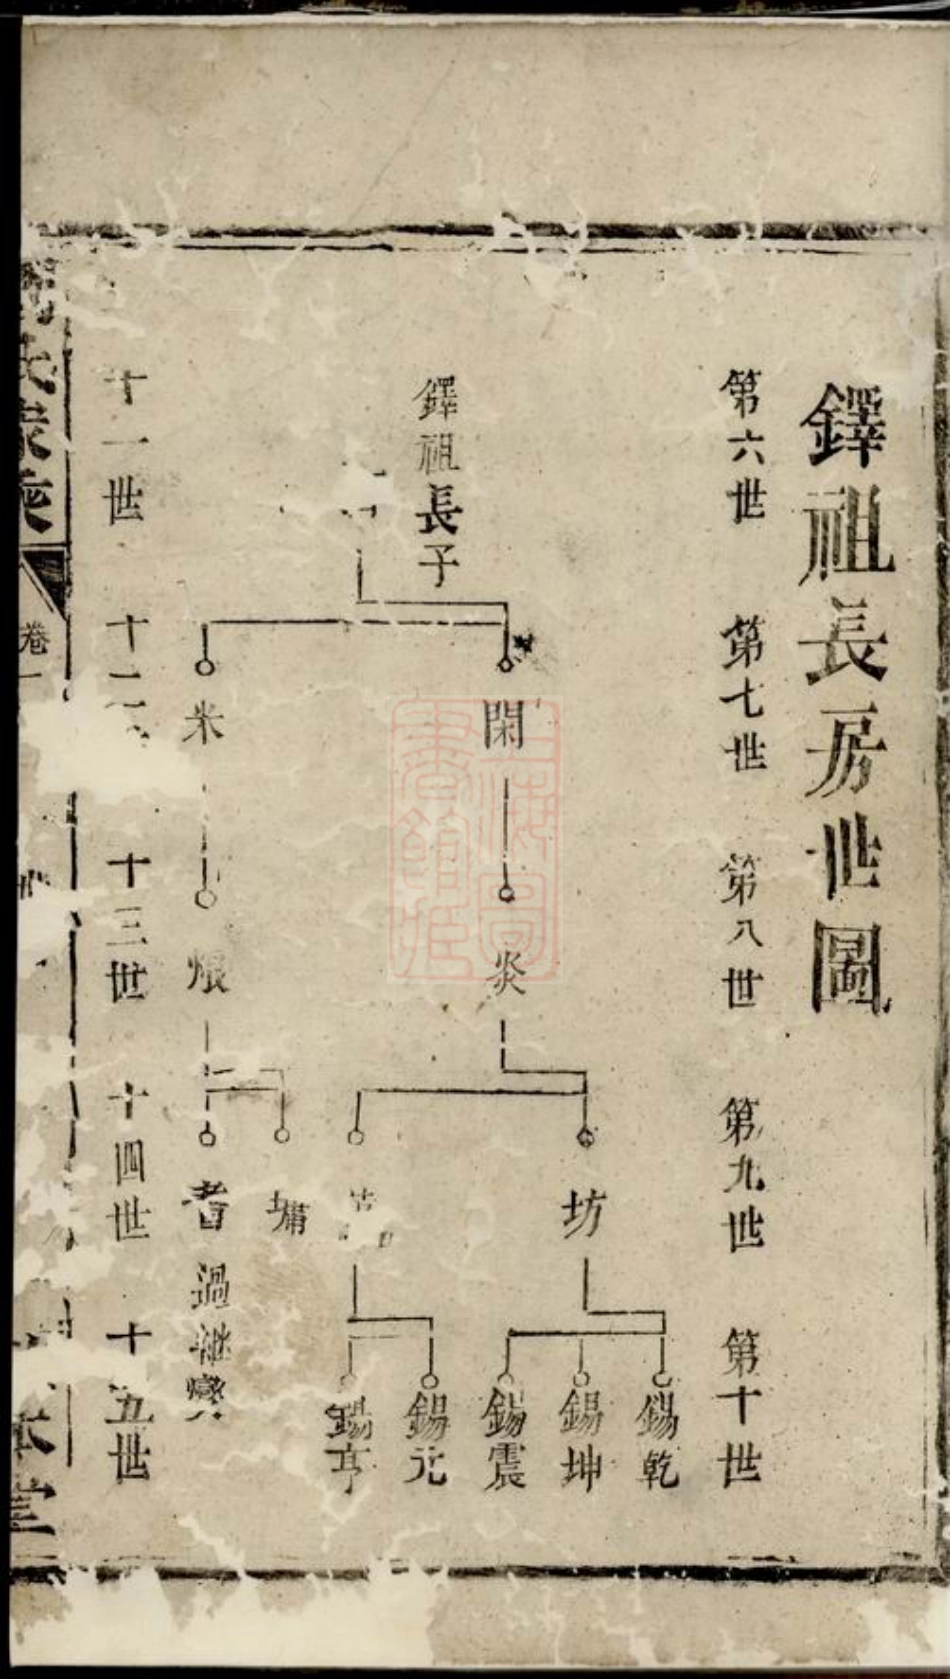 鐸祖長房世圖
第六世
第七世
第八世
第九世
第十世
鐸祖長子
閑
米
炎
坊
墉
耆
過繼
錫乾
錫坤
錫震
錫元
錫亨
十一世
十二
十三世
十四世
十五世
氏家乘
卷一
堂